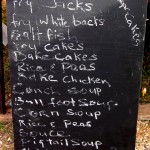 fry Jacks
fry white backs
Salt fish
fry Cakes
Bake Cakes
Rice & Peas
Bake Chicken
Conch Soup
Bull foot Soup
Corn Soup
Rice & Peas
Souce
Pigtail Soup
Cakes